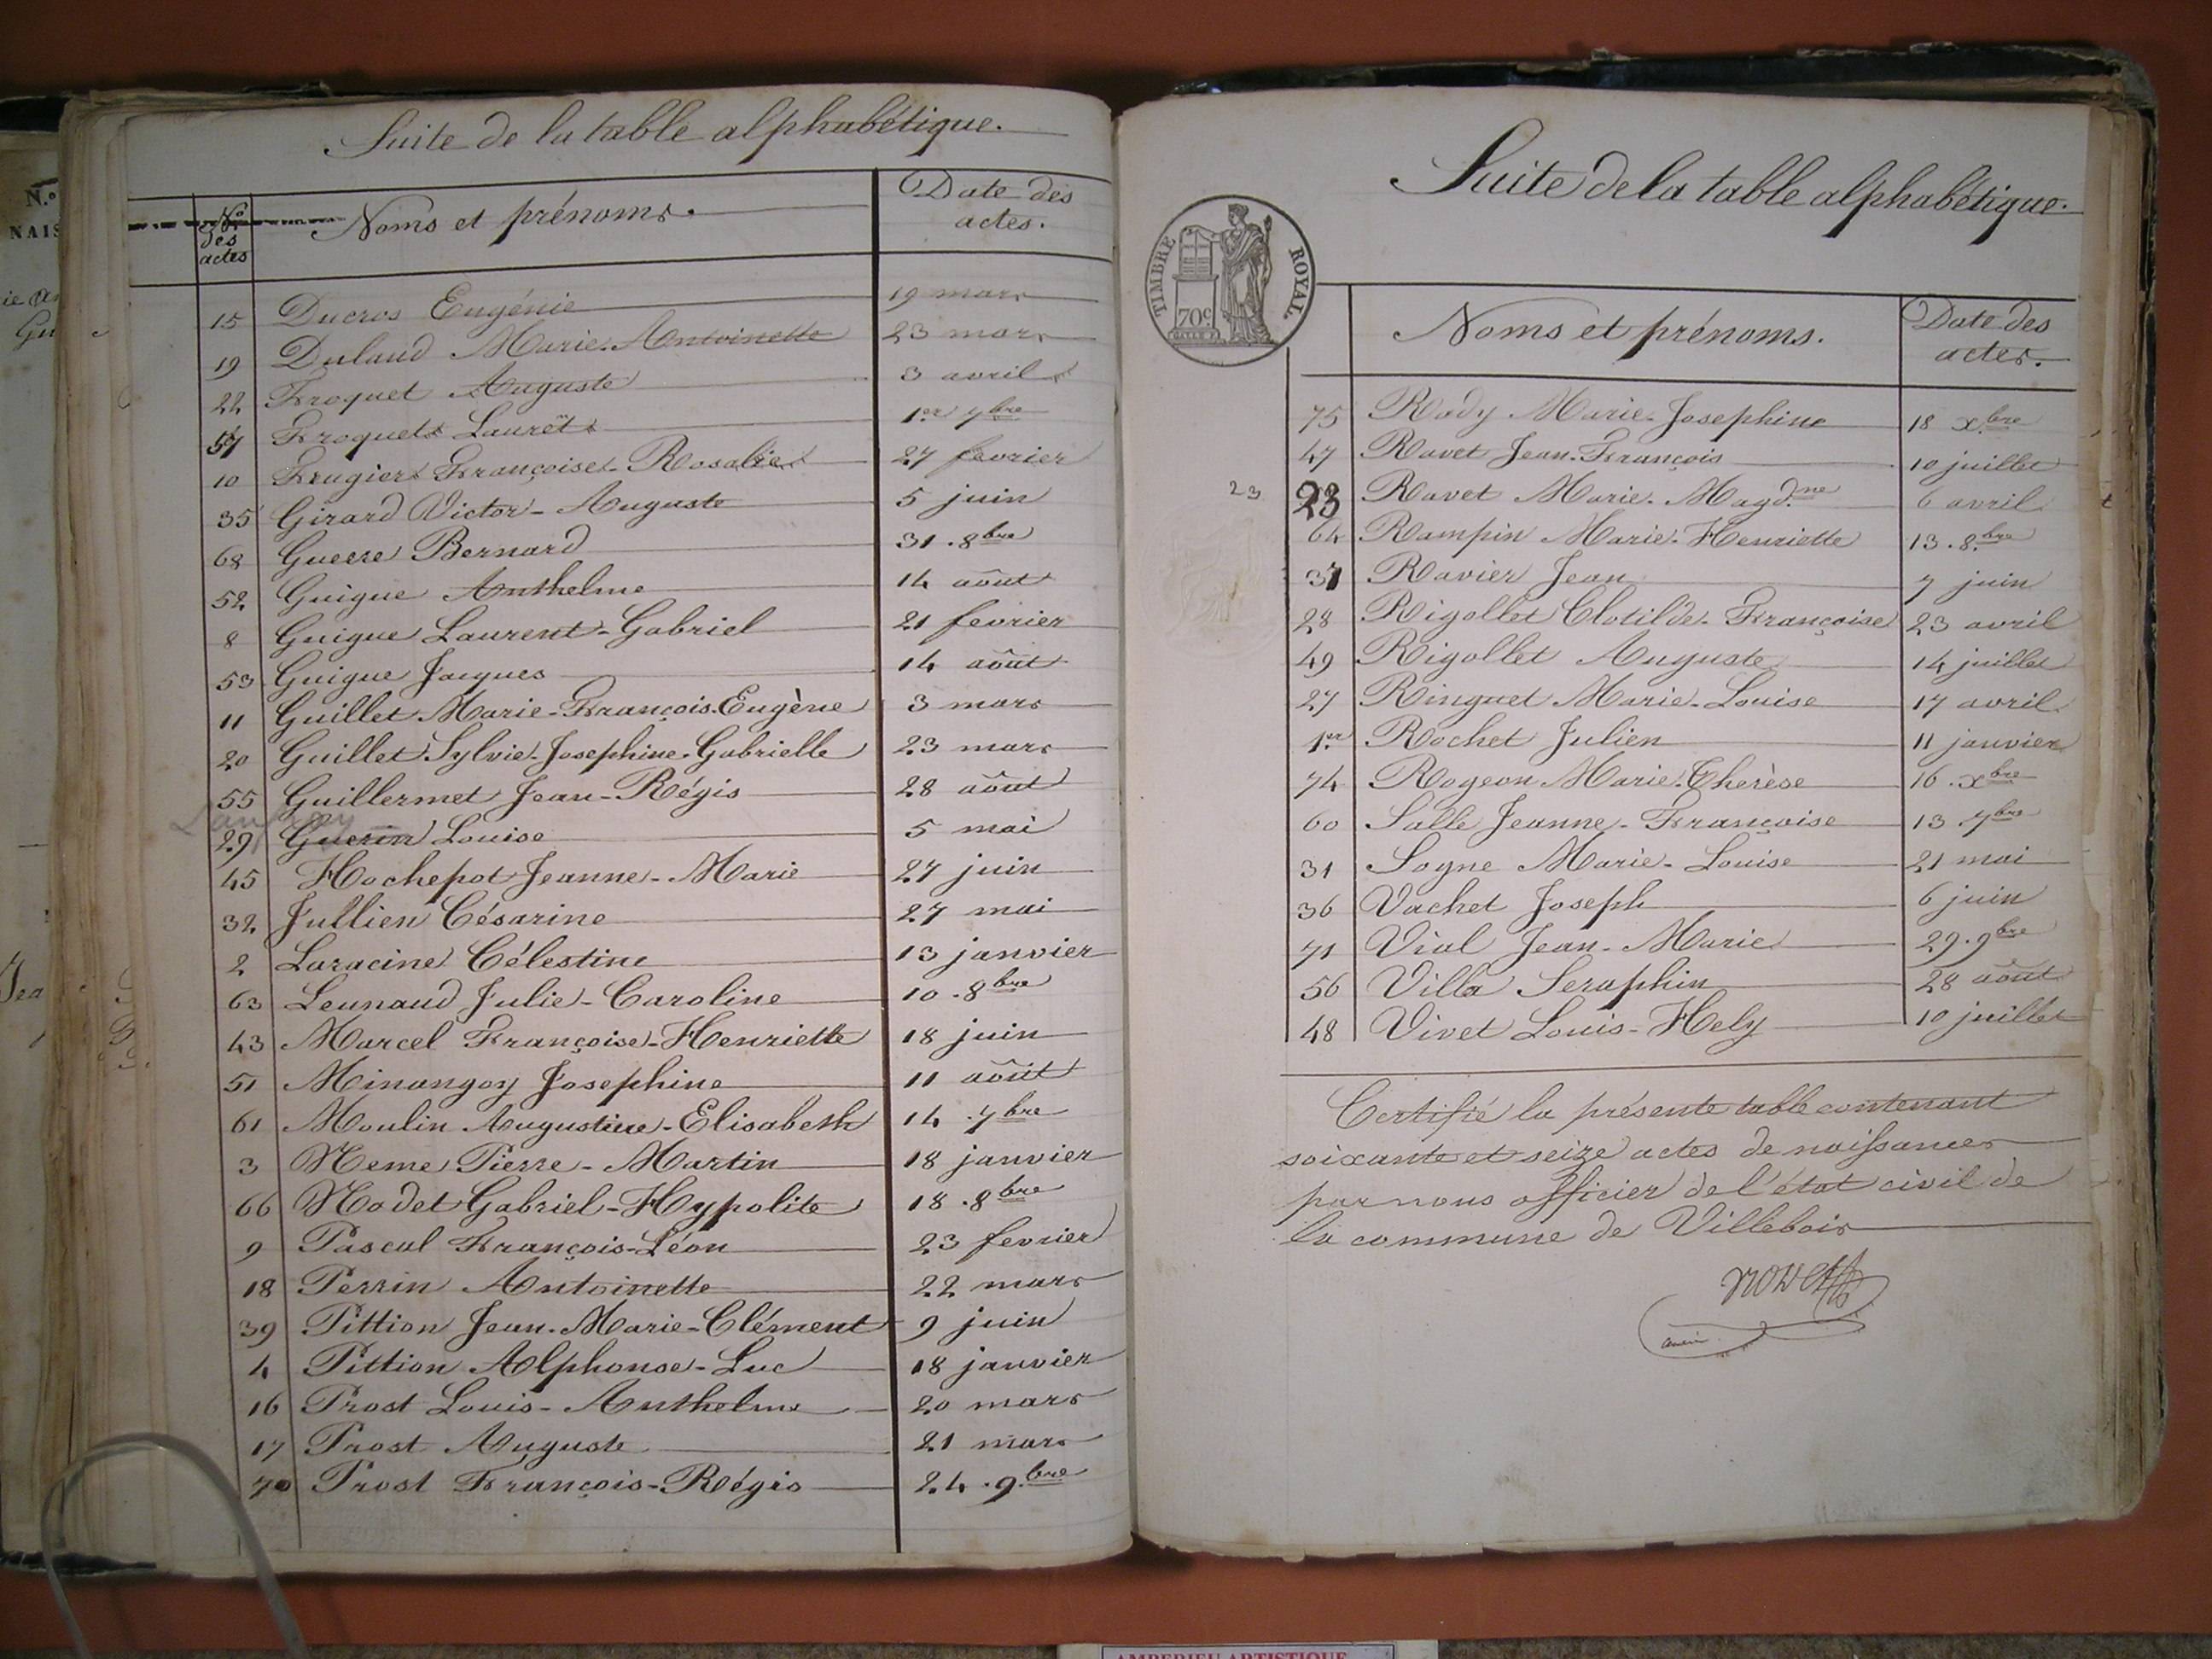 Suite de la table alphabétique.
Nos des actes
Noms et prénoms.
Date des actes.
15 Ducros Eugénie 19 mars
19 Dulaud Marie-Antoinette 23 mars
22 Froquet Auguste 3 avril
57 Froquet Laurët 1er 7bre
10 Frugier Françoise-Rosalie 27 fevrier
35 Girard Victor-Auguste 5 juin
68 Guerre Bernard 31.8bre
52 Guigue Anthelme 14 août
8 Guigue Laurent-Gabriel 21 fevrier
53 Guigue Jacques 14 août
11 Guillet Marie-François-Eugène 3 mars
20 Guillet Sylvie-Josephine-Gabrielle 23 mars
55 Guillermet Jean-Régis 28 août
29 Guerin Louise 5 mai
45 Hochepot Jeanne-Marie 27 juin
32 Jullien Césarine 27 mai
2 Laracine Célestine 13 janvier
63 Leunaud Julie-Caroline 10.8bre
43 Marcel Françoise-Henriette 18 juin
51 Minangoy Josephine 11 août
61 Moulin Augustine-Elisabeth 14.7bre
3 Neme Pierre-Martin 18 janvier
66 Nodet Gabriel-Hypolite 18.8bre
9 Pascal François-Léon 23 fevrier
18 Perrin Antoinette 22 mars
39 Pittion Jean-Marie-Clément 9 juin
4 Pittion Alphonse-Luc 18 janvier
16 Prost Louis-Anthelme 20 mars
17 Prost Auguste 21 mars
70 Prost François-Régis 24.9.bre
Suite de la table alphabétique.
TIMBRE ROYAL
70c
Noms et prénoms.
Date des actes.
75 Rady Marie-Josephine 18 xbre
47 Ravet Jean-François 10 juillet
23 23 Ravet Marie-Magd.ne 6 avril
64 Rampin Marie-Henriette 13.8.bre
37 Ravier Jean 7 juin
28 Rigollet Clotilde-Françoise 23 avril
49 Rigollet Auguste 14 juillet
27 Ringuet Marie-Louise 17 avril
1er Rochet Julien 11 janvier
74 Rogeon Marie-Therèse 16.xbre
60 Salle Jeanne-Françoise 13 7bre
31 Sogne Marie-Louise 21 mai
36 Vachet Joseph 6 juin
71 Vial Jean-Marie 29.9bre
56 Villa Seraphin 28 août
48 Vivet Louis-Hely 10 juillet
Certifié la présente table contenant
soixante et seize actes de naissances
par nous officier de l'état civil de
la commune de Villebois
AMBERIEU ARTISTIQUE